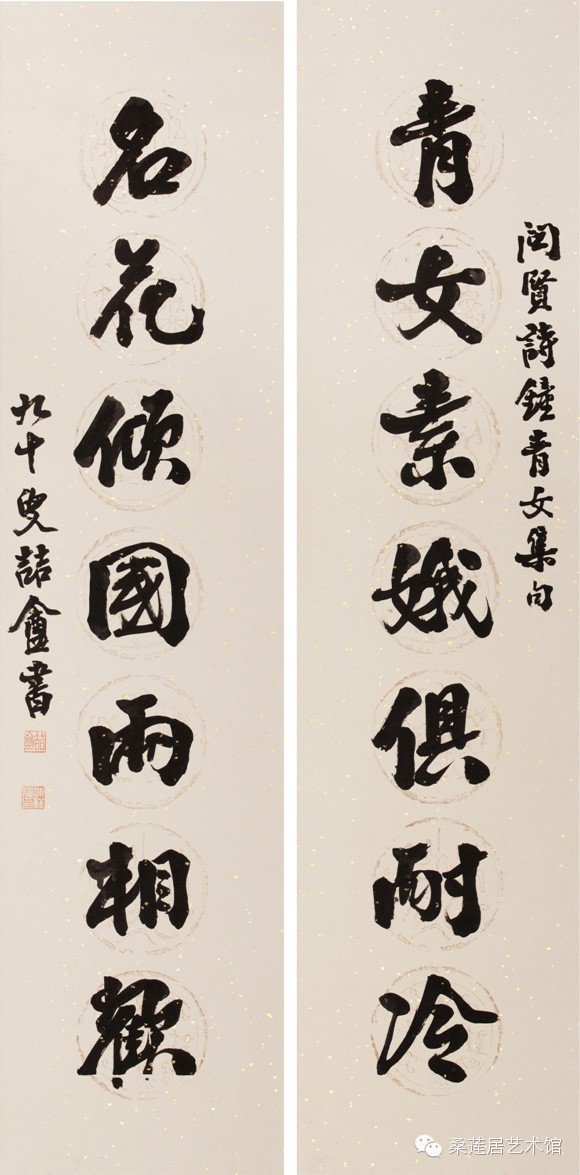 閩賢詩鐘青女集句
青女素娥俱耐冷
名花傾國兩相歡
九十叟喆盦書
桑莲居艺术馆